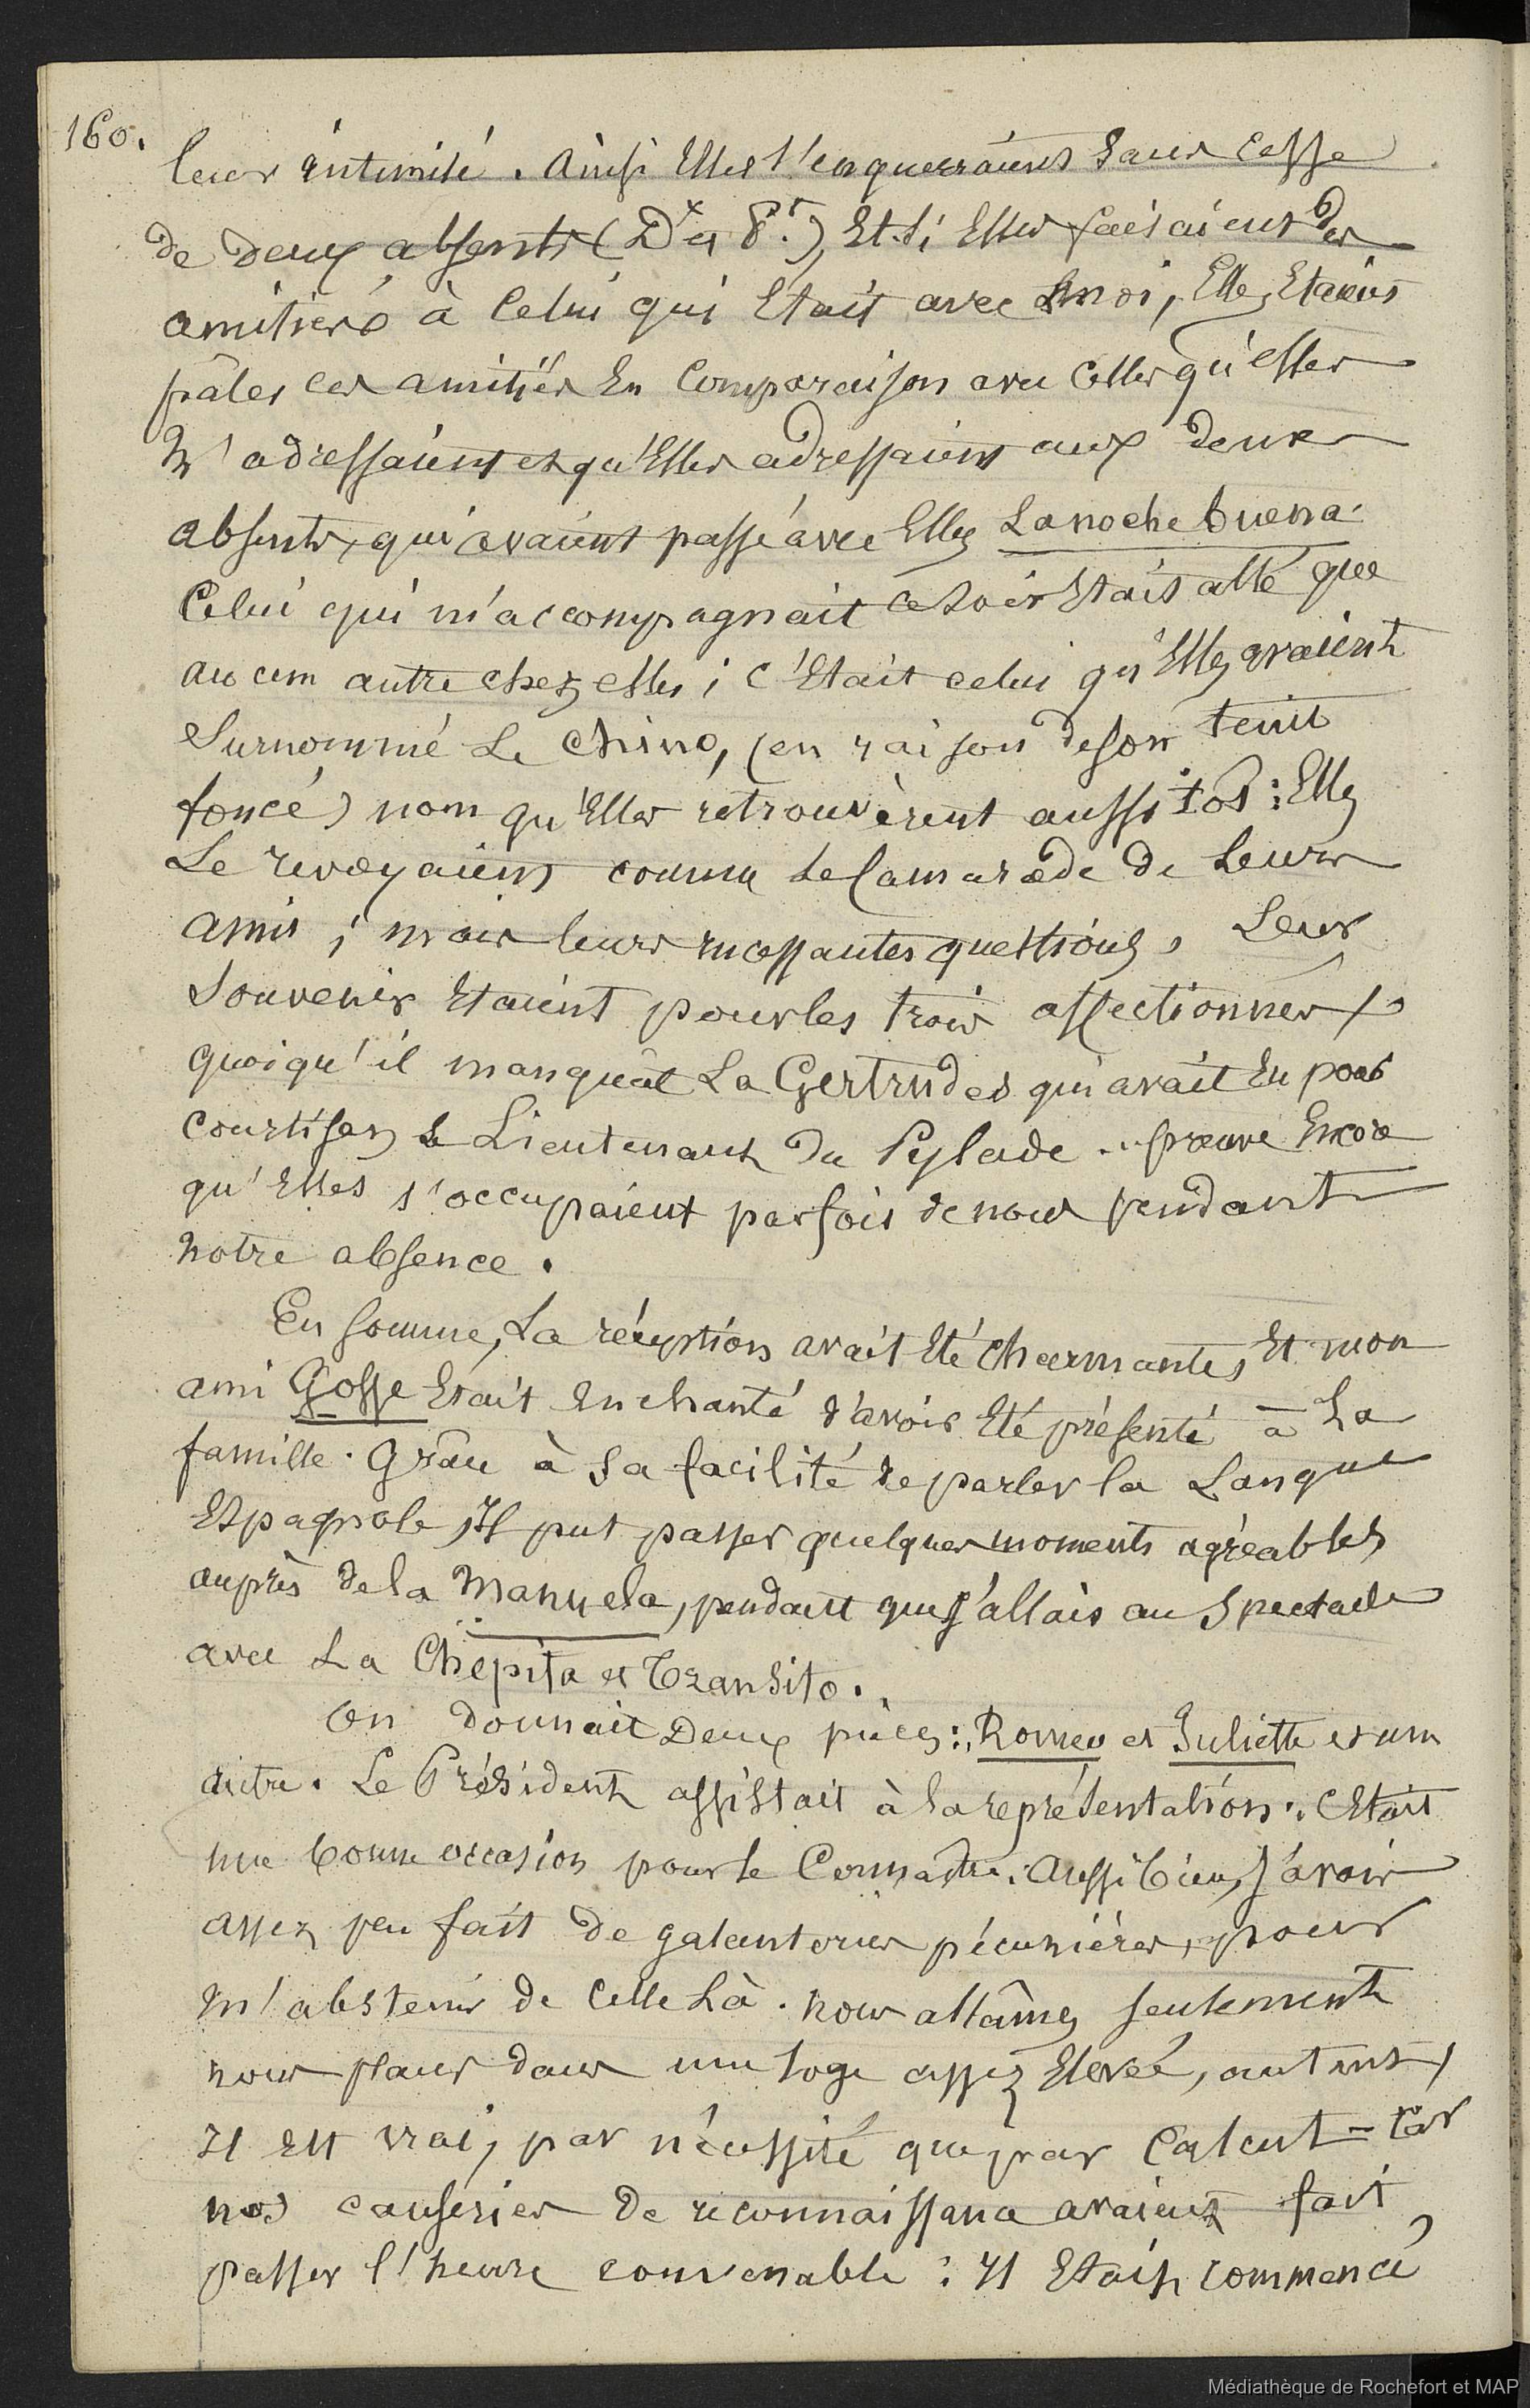 160.
leur intimité. Ainsi Elles s'enquerraient sans cesse
de deux absents (Dx et Pt.), Et si Elles faisaient des
amitiés à Celui qui Etait avec moi, Elles Etaient
pâles ces amitiés En Comparaison avec Celles qu'elles
m'adressaient et qu'Elles adressaient aux deux
absents, qui avaient passé avec Elles La noche buena.
Celui qui m'accompagnait ce soir Etait allé que
aucun autre chez elles ; c'Etait celui qu'Elles avaient
Surnommé Le Chino, (en raison de son teint
foncé) nom qu'Elles retrouvèrent aussitôt : Elles
Le revoyaient comme Le Camarade de Leurs
amis ; mais leurs incessantes questions, Leur
Souvenir Etaient pour les trois affectionnés,
quoiqu'il manquât La Gertrudes qui avait Eu pour
courtisan Le Lieutenant Du Pylade... preuve Encore
qu'Elles s'occupaient parfois de nous pendant
notre absence.
En somme, La réception avait Eté Charmante, Et mon
ami Gosse Etait Enchanté d'avoir Eté présenté à La
famille. Grâce à Sa facilité de parler la Langue
Espagnole, Il put passer quelques moments agréables
auprès de la Manuela, pendant que J'allais au Spectacle
avec La Chepita et Transito.
On donnait Deux pièces : Romeo et Juliette et une
autre. Le Président assistait à la représentation : C'Etait
une bonne occasion pour le Connaître. Aussi bien, J'avais
assez peu fait De galanteries pécunières, pour
m'abstenir de Celle Là. Nous allâmes seulement
nous placer dans une loge assez Elevée, autant,
Il Est vrai, par nécessité que par Calcul - Car
nos causeries De reconnaissance avaient fait
passer l'heure convenable : Il Etait commencé